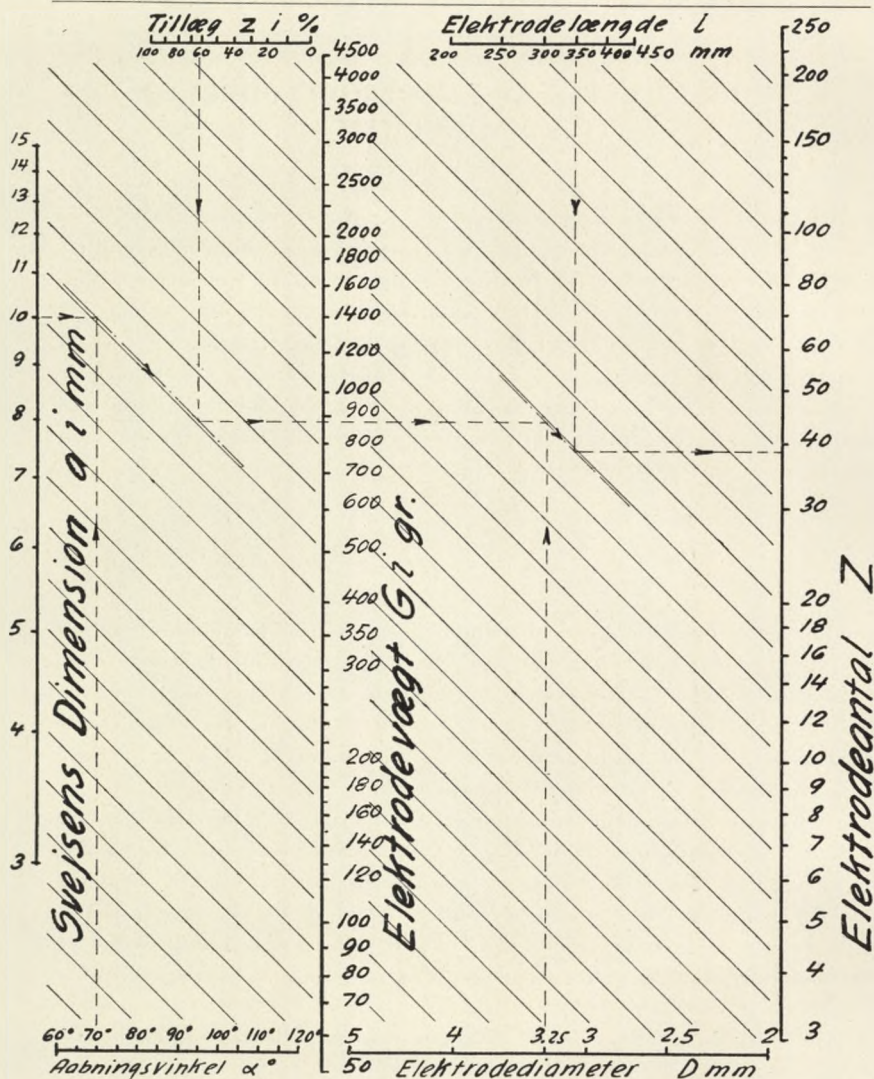 Tillæg Z i %
100 80 60 40 20 0
Elektrodelængde l
200 250 300 350 400 450 mm
15
14
13
12
11
10
9
8
7
6
5
4
3
Svejsens Dimension a i mm
4500
4000
3500
3000
2500
2000
1800
1600
1400
1200
1000
900
800
700
600
500
400
350
300
200
180
160
140
120
100
90
80
70
50
Elektrodevægt G i gr.
250
200
150
100
80
60
50
40
30
20
18
16
14
12
10
9
8
7
6
5
4
3
Elektrodeantal Z
60° 70° 80° 90° 100° 110° 120°
Aabningsvinkel α°
5 4 3.25 3 2,5 2
Elektrodediameter D mm